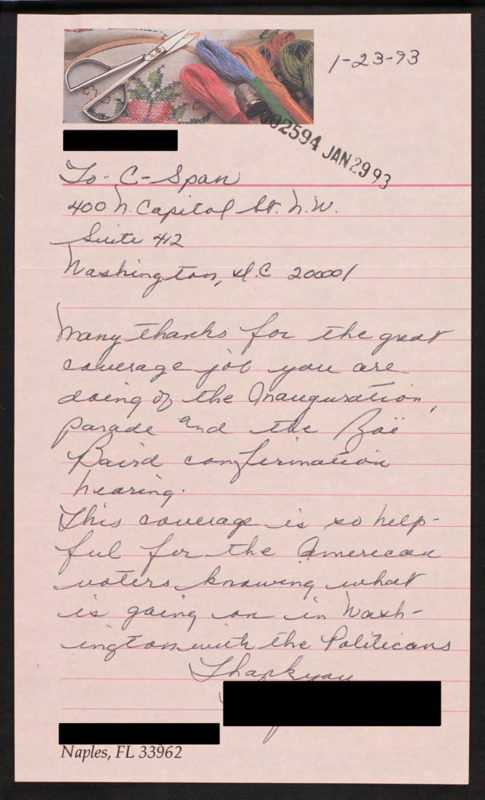 1-23-93
002594 JAN 29 93
To- C-Span
400 N. Capitol St. N.W.
Suite 412
Washington, D.C 20001
Many thanks for the great
coverage job you are
doing of the Inauguration,
parade and the Zoë
Baird confirmation
hearing.
This coverage is so help-
ful for the American
voters knowing what
is going on in Wash-
ington with the Politicans
Thank you
Naples, FL 33962